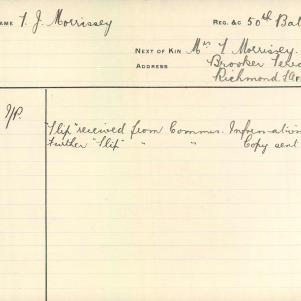 NAME T. J. Morrissey REG. &C 50th Bat
NEXT OF KIN Mrs T Morrissey.
ADDRESS Brooker Terr
Richmond
"Slip" received from Commis. Information
Further "Slip" " " Copy sent